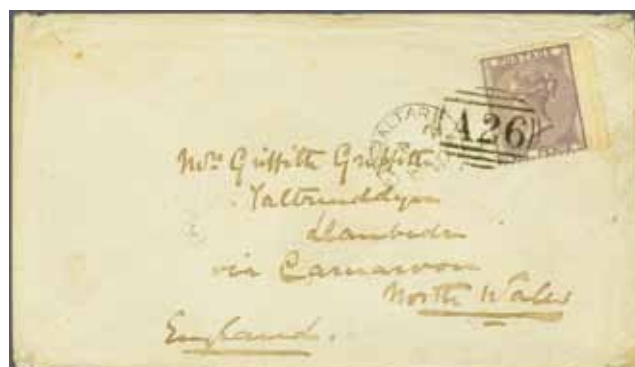 POSTAGE
A26
Mrs Griffith Griffith
Taltreuddyn
Llanbedr
via Carnarvon
North Wales
England.